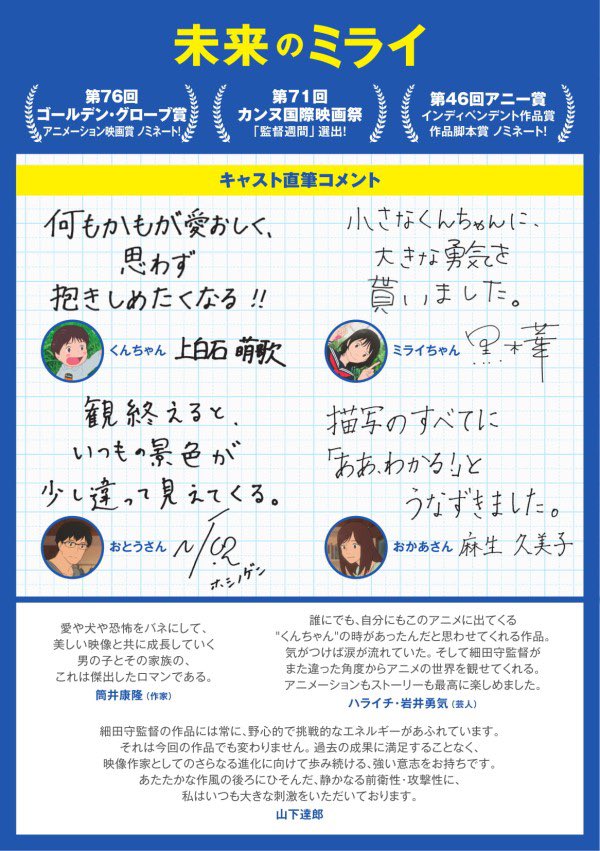 未来のミライ
第76回
ゴールデン・グローブ賞
アニメーション映画賞 ノミネート!
第71回
カンヌ国際映画祭
「監督週間」選出!
第46回アニー賞
インディペンデント作品賞
作品脚本賞 ノミネート!
キャスト直筆コメント
何もかもが愛おしく、
思わず
抱きしめたくなる!!
くんちゃん 上白石 萌歌
小さなくんちゃんに、
大きな勇気を
貰いました。
ミライちゃん 黒木華
観終えると、
いつもの景色が
少し違って見えてくる。
おとうさん
ホシノゲン
描写のすべてに
「ああ、わかる!」と
うなずきました。
おかあさん 麻生 久美子
愛や犬や恐怖をバネにして、
美しい映像と共に成長していく
男の子とその家族の、
これは傑出したロマンである。
筒井康隆(作家)
誰にでも、自分にもこのアニメに出てくる
"くんちゃん"の時があったんだと思わせてくれる作品。
気がつけば涙が流れていた。そして細田守監督が
また違った角度からアニメの世界を観せてくれる。
アニメーションもストーリーも最高に楽しめました。
ハライチ・岩井勇気(芸人)
細田守監督の作品には常に、野心的で挑戦的なエネルギーがあふれています。
それは今回の作品でも変わりません。過去の成果に満足することなく、
映像作家としてのさらなる進化に向けて歩み続ける、強い意志をお持ちです。
あたたかな作風の後ろにひそんだ、静かなる前衛性・攻撃性に、
私はいつも大きな刺激をいただいております。
山下達郎